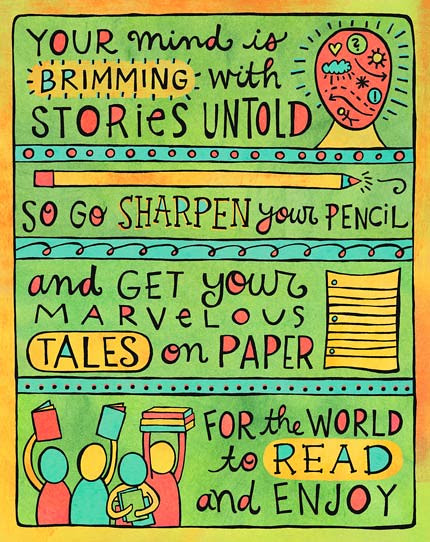 YOUR mind is
BRIMMING with
STORIES UNTOLD
SO GO SHARPEN your PENCIL
and GET your
MARVELOUS
TALES on PAPER
FOR the WORLD
to READ
and ENJOY